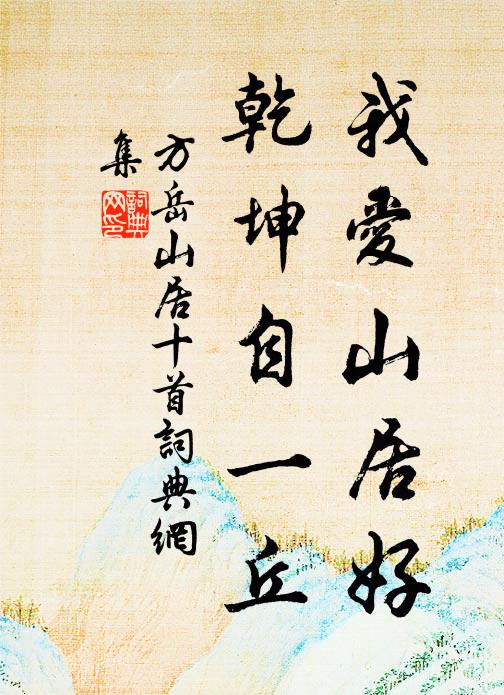 我愛山居好
乾坤自一丘
方岳山居十首詞典網
集
詞典
网印